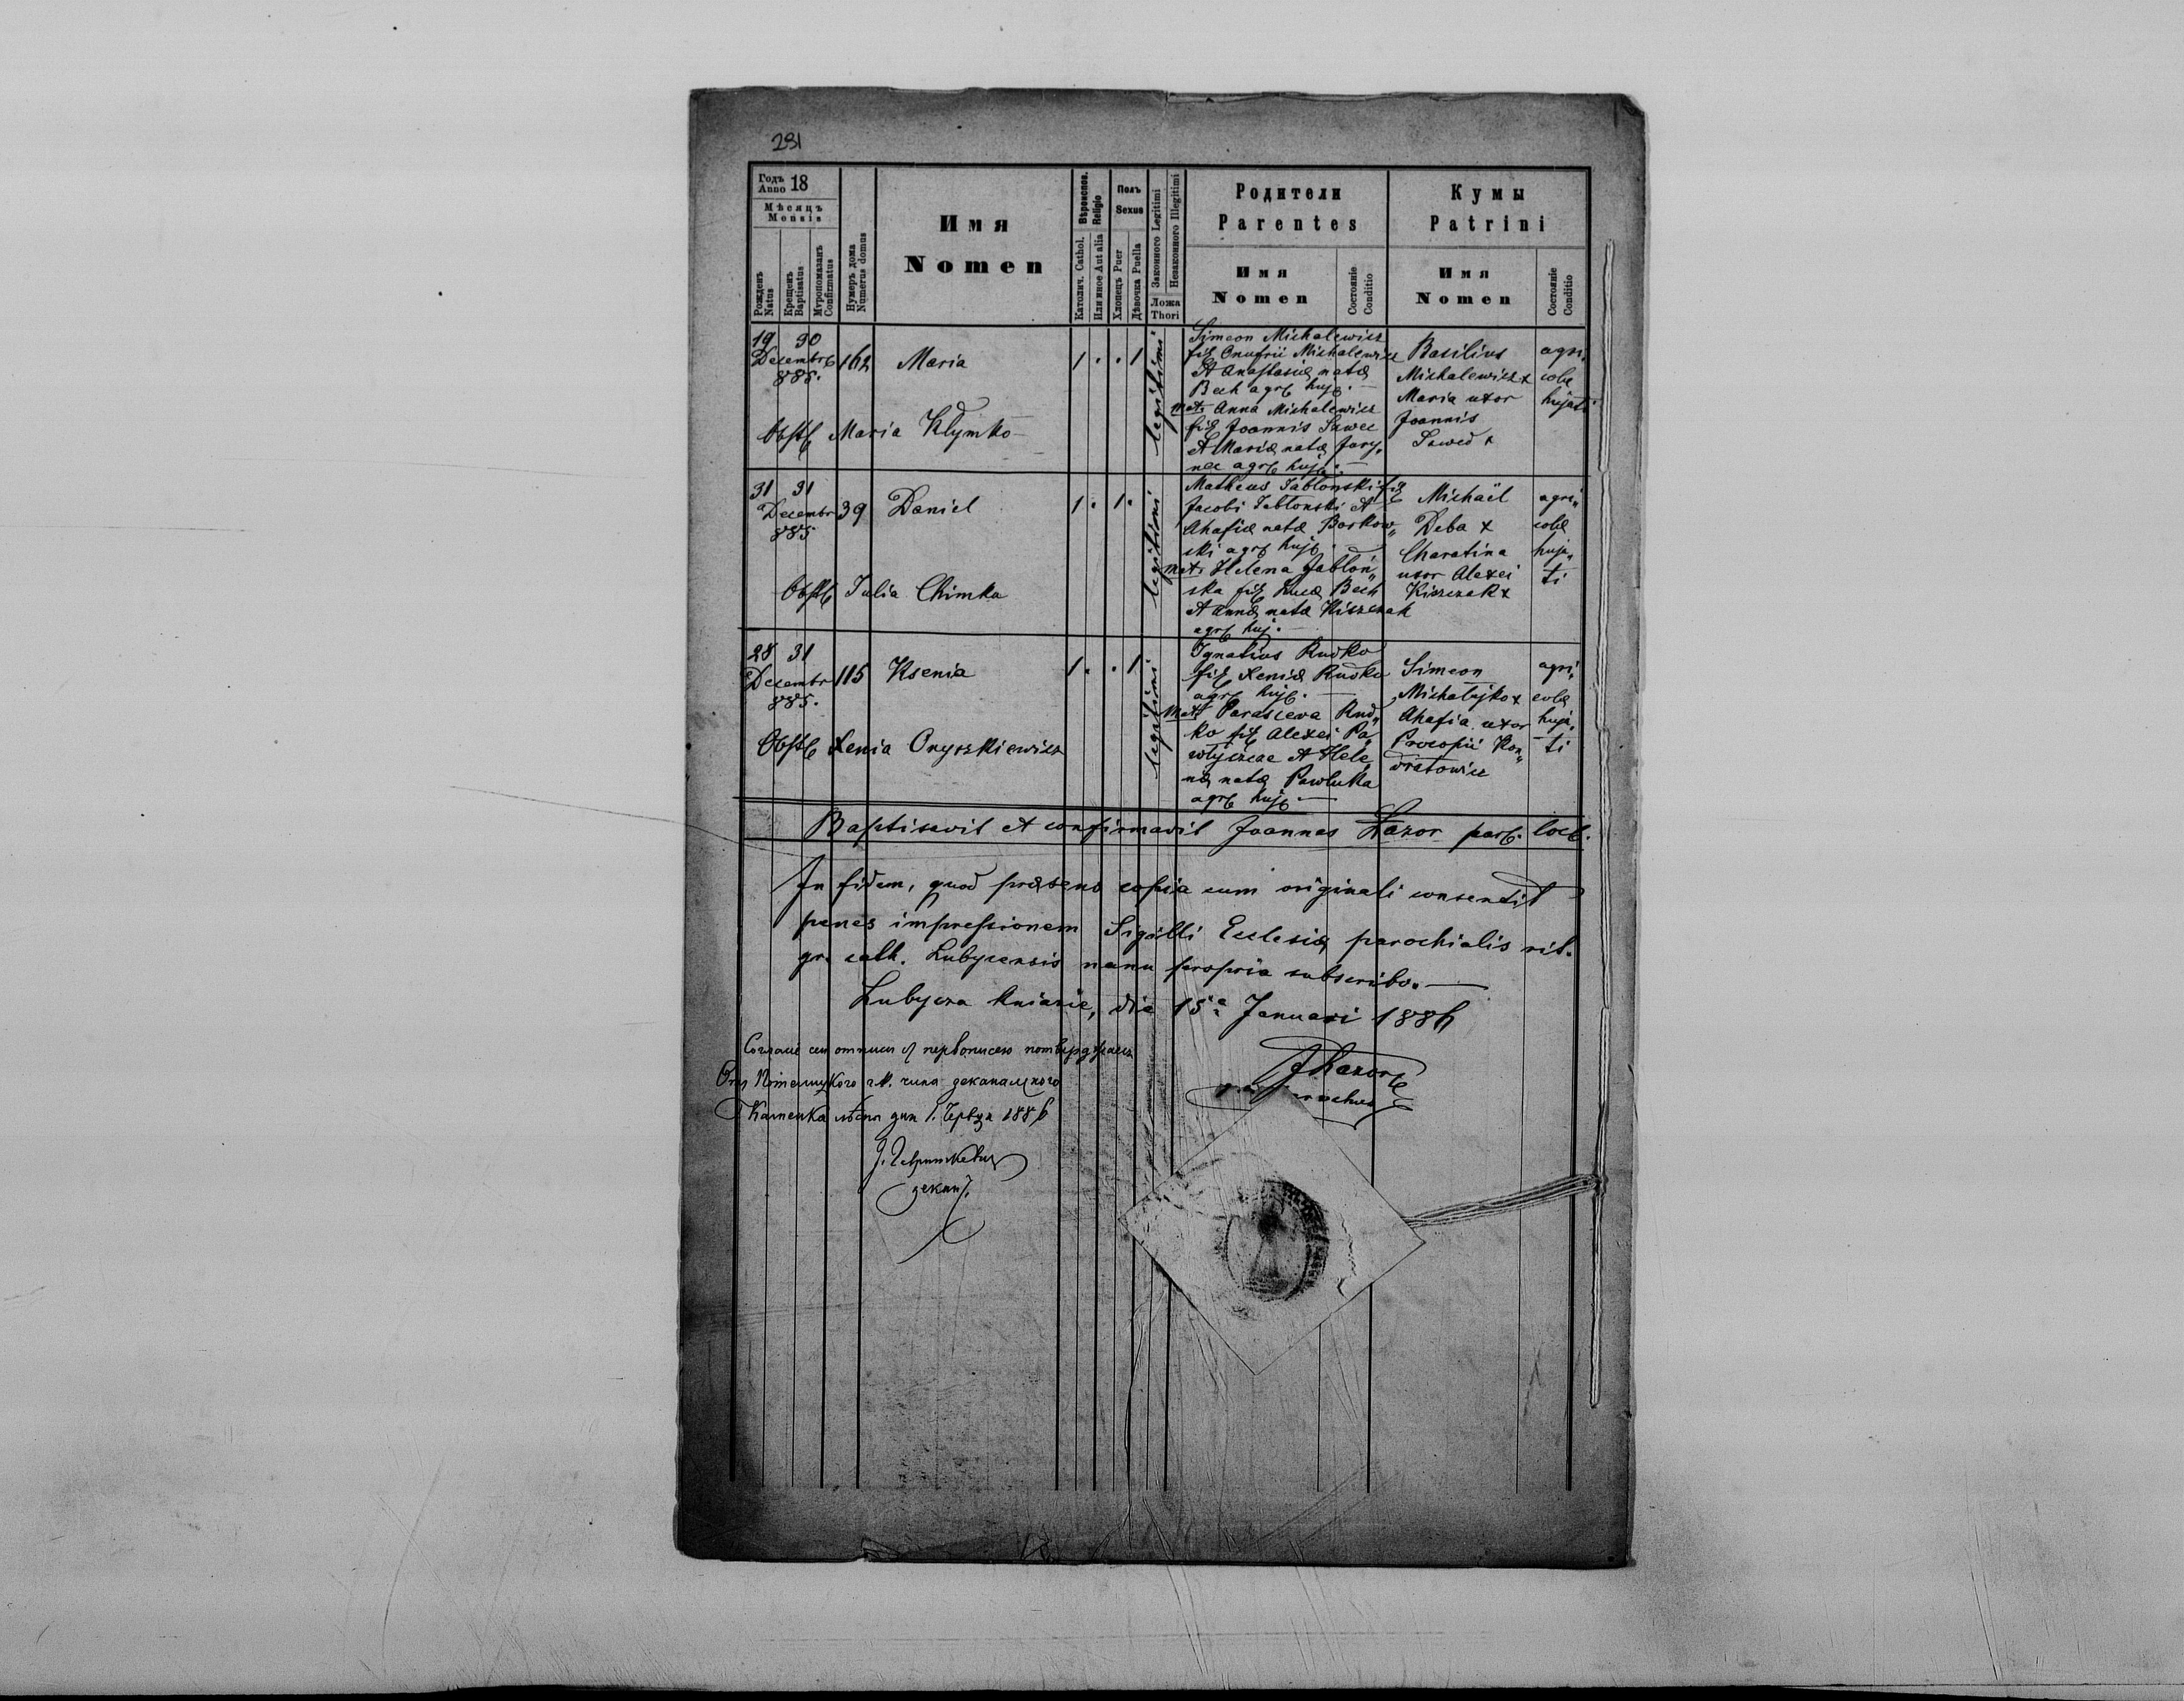 231
Годъ Anno 18
Мѣсяцъ Mensis
Рожденъ Natus
Крещенъ Baptisatus
Муропомазанъ Confirmatus
Нумеръ дома Numerus domus
Имя Nomen
Вѣроиспов. Religio
Католич. Cathol.
Или иное Aut alia
Полъ Sexus
Хлопецъ Puer
Дѣвочка Puella
Законного Legitimi
Незаконного Illegitimi
Ложа Thori
Родители Parentes
Имя Nomen
Состояніе Conditio
Кумы Patrini
Имя Nomen
Состояніе Conditio
19 30
Decembr
885.
162
Maria
1 . . 1
legitimi
Simeon Michalewicz
fil Onufrii Michalewicz
et Anastasiæ natæ
Bech agr huj. —
mat. Anna Michalewicz
fil Joannis Sawec
et Mariæ natæ Jary„
nec agr huj. —
Basilius
Michalewicz x
Maria uxor
Joannis
Sawec x
agri„
colæ
hujati
Obst Maria Klymko
31 31
Decembr
885
39
Daniel
1 . 1 .
legitimi
Matheus Jablonski fil
Jacobi Jablonski et
Ahafiæ natæ Borkow„
ski agr huj. —
mat. Helena Jablon„
ska fil Lucæ Bech
et Annæ natæ Kiszczak
agr huj. —
Michaël
Deba x
Charatina
uxor Alexei
Kiszczak x
agri„
colæ
huja„
ti
Obst Julia Chimka
28 31
Decembr
885.
115
Ksenia
1 . . 1
legitimi
Ignatius Rudko
fil Xeniæ Rudko
agr huj. —
Mat. Parasceva Rud„
ko fil Alexei Pa„
et Hele„
næ natæ Pawluka
agr huj. —
Simeon
Michalejko x
Ahafia uxor
Procopii Kon„
dratowicz
agri„
colæ
huja„
ti
Obst Xenia Onyszkiewicz
Baptisavit et confirmavit Joannes Lazor par. loc.
In fidem, quod præsens copia cum originali consentit
penes impressionem Sigilli Ecclesiæ parochialis rit.
gr. cath. Lubycensis manu propria subscribo. —
Lubycza kniazie, die 15ª Januari 1886
JLazor
parochus
Согласіе сеи отписи съ первописею потверджаеся
Отъ Потелицкого г. к. чина деканального
Каменка лѣсна дня 1. Червца 1886
декан.